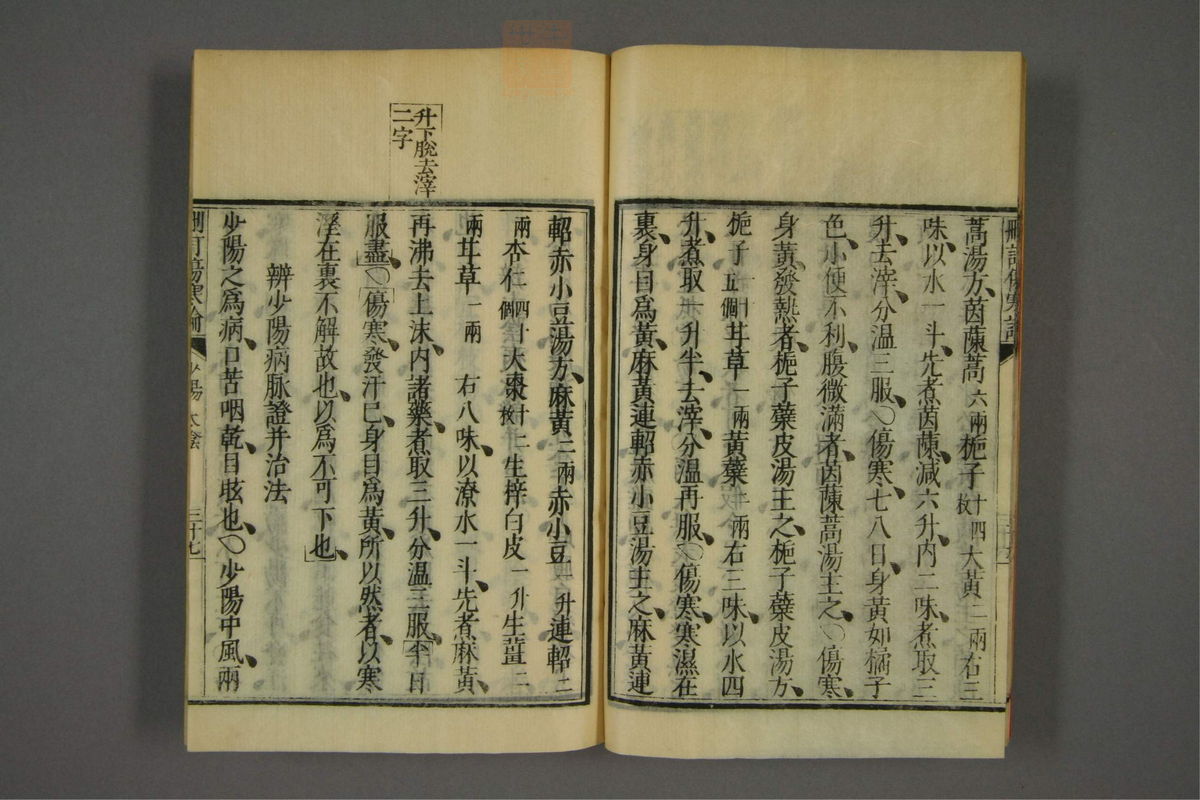 蒿湯方、茵蔯蒿六兩梔子十四枚大黃二兩右三
味、以水一斗、先煮茵蔯、減六升、內二味、煮取三
升、去滓、分溫三服、○傷寒七八日、身黃如橘子
色、小便不利、腹微滿者、茵蔯蒿湯主之、○傷寒、
身黃發熱者、梔子蘗皮湯主之、梔子蘗皮湯方、
梔子十五個甘草一兩黃蘗二兩右三味、以水四
升、煮取一升半、去滓、分溫再服、○傷寒、寒濕在
裏、身目爲黃、麻黃連軺赤小豆湯主之、麻黃連
升下脫去滓
二字
軺赤小豆湯方、麻黃二兩赤小豆一升連軺二
兩杏仁四十個大棗十二枚生梓白皮一升生薑二
兩甘草二兩 右八味、以潦水一斗、先煮麻黃、
再沸去上沫、內諸藥、煮取三升、分溫三服、半日
服盡、○傷寒、發汗已、身目爲黃、所以然者、以寒
溼在裏不解故也、以爲不可下也、
辨少陽病脉證并治法
少陽之爲病、口苦咽乾、目眩也、○少陽中風、兩
少陽 太陰
三十七